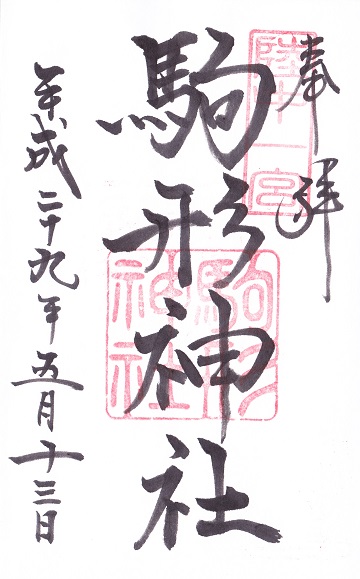 奉拝
陸中一宮
駒形神社
駒形神社
平成二十九年五月十三日